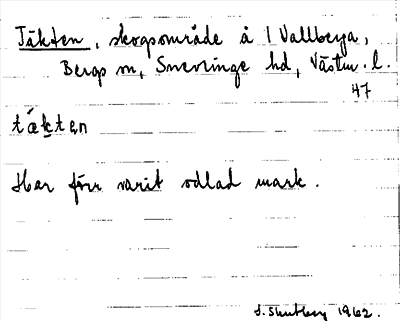 Täkten, skogsområde å 1 Vallberga,
Bergs sn, Snevringe hd, Västm. l.
47
tǽkten
Har förr varit odlad mark.
1962.